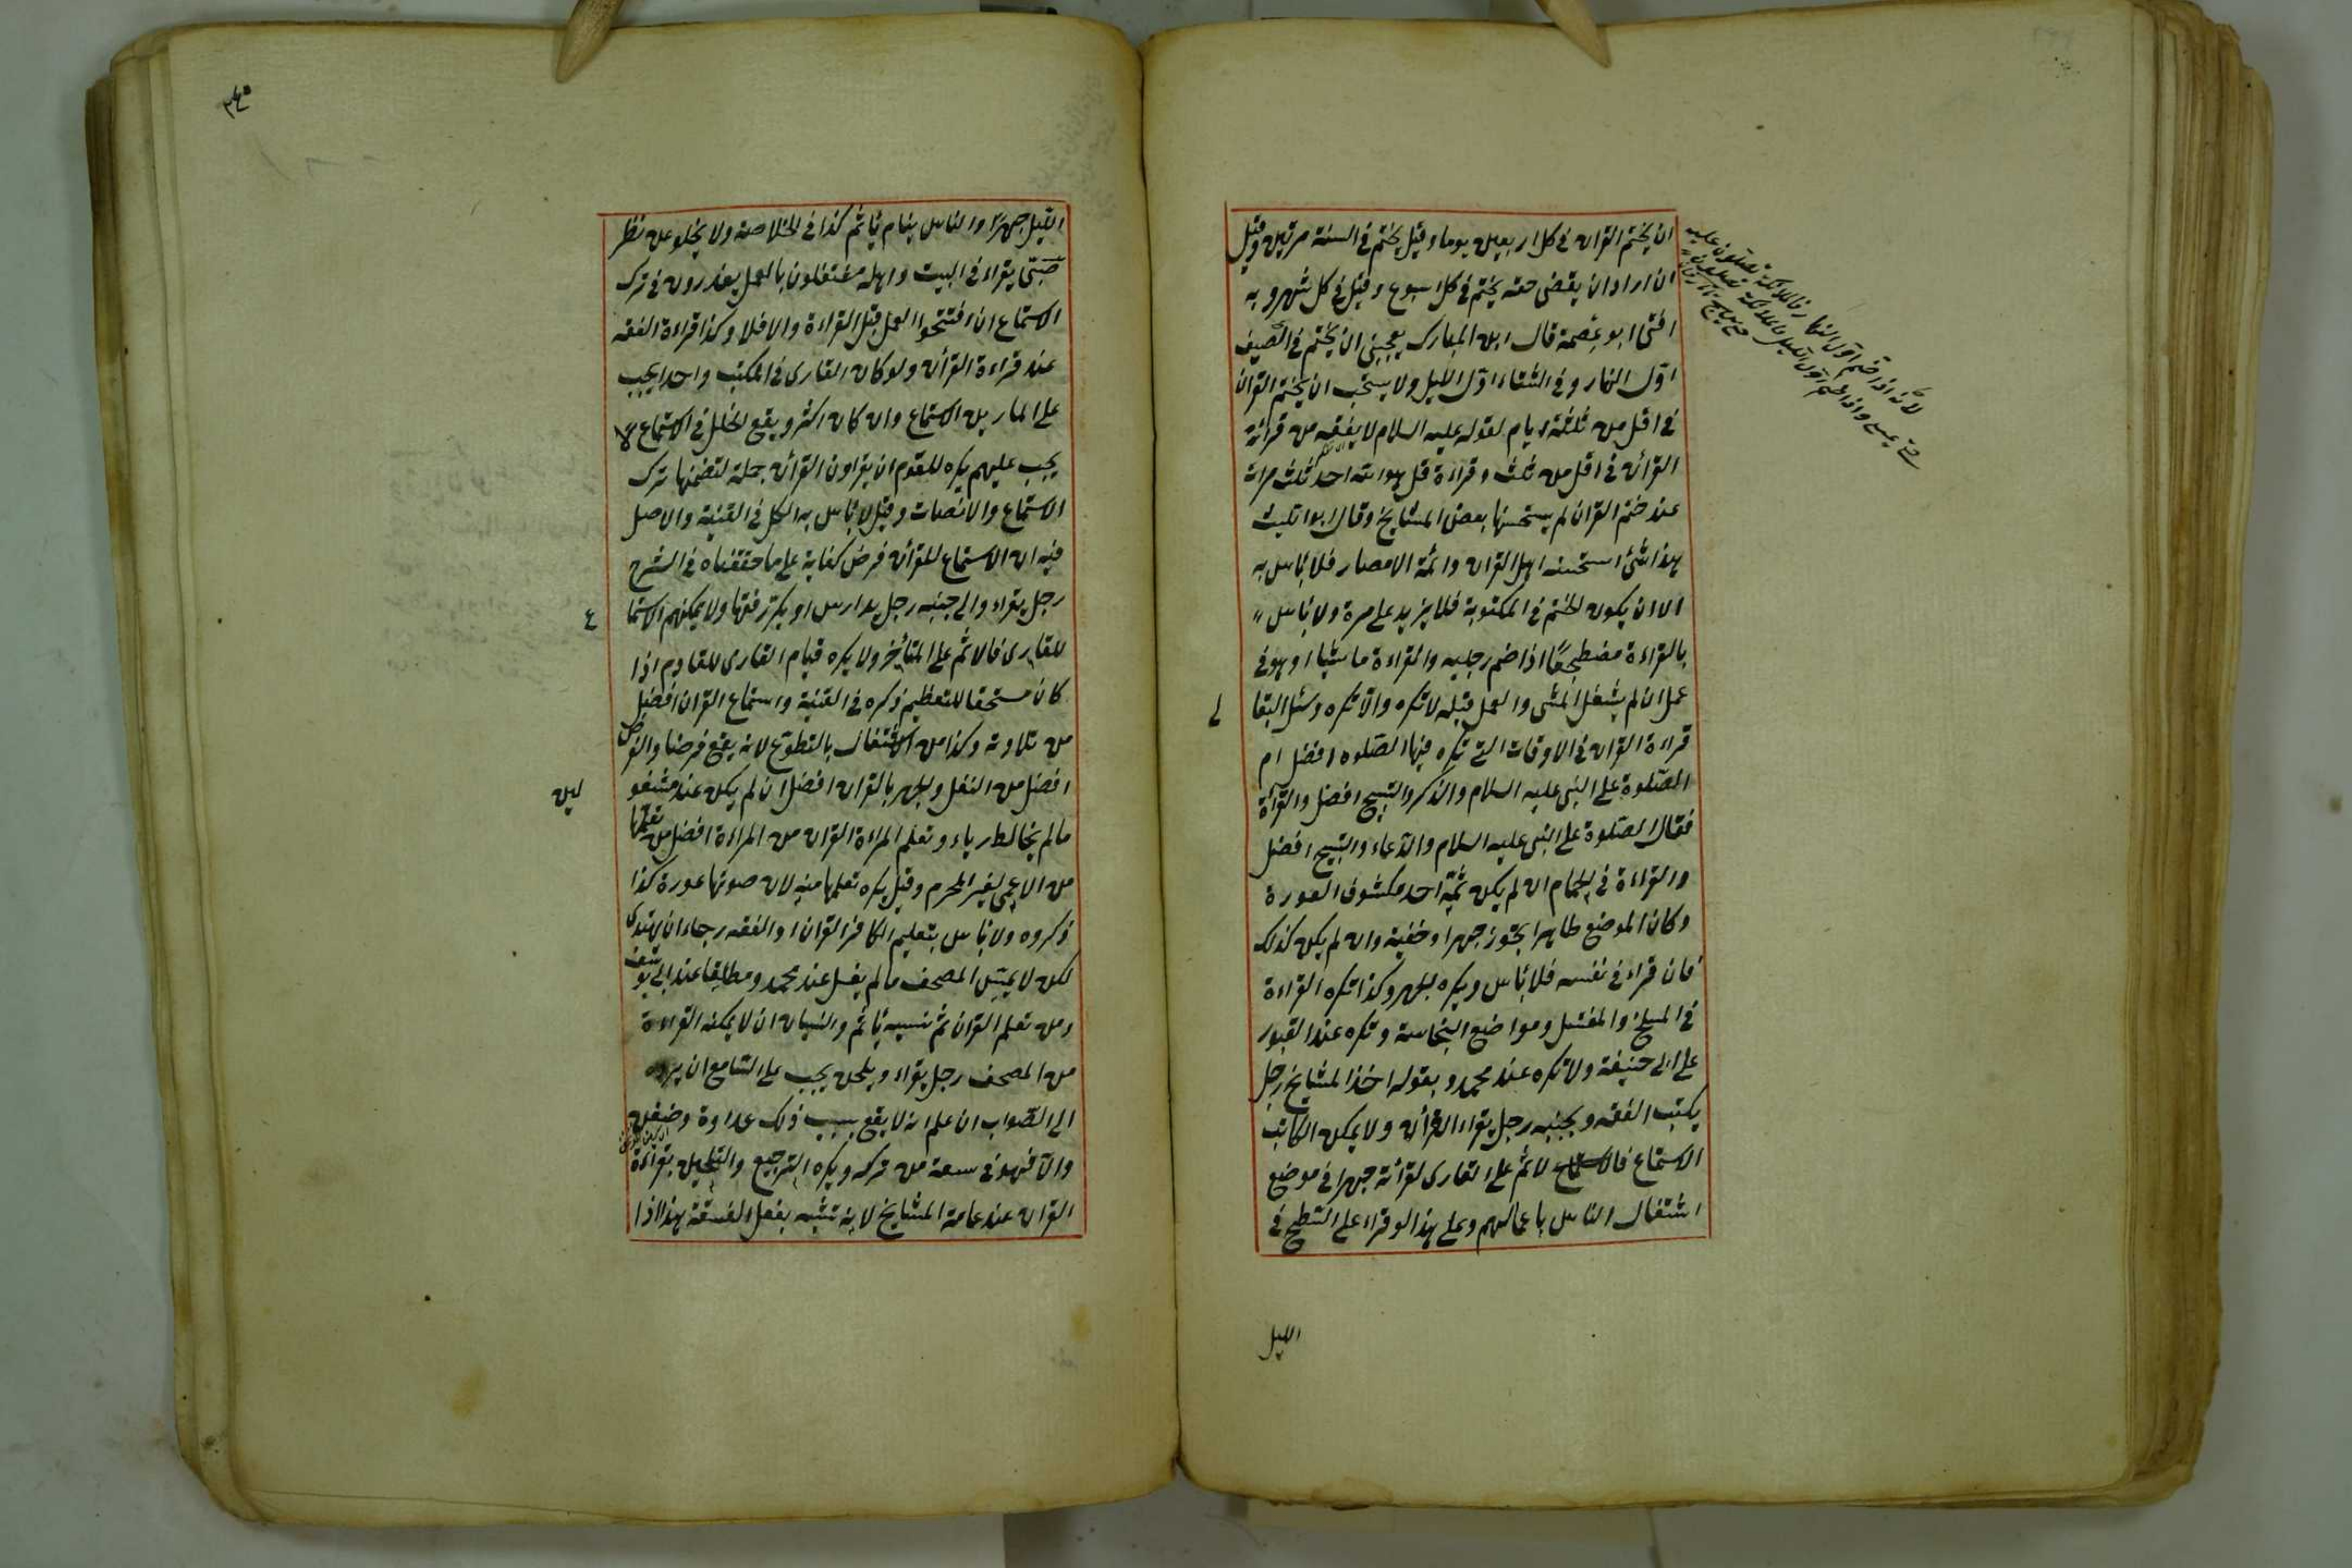 ان يختم القران في كل اربعين يوما وقيل يختم في السنة مرتين وقيل
ان اراد ان يقضي حقه يختم في كل اسبوع وقيل في كل شهر وبه
افتى ابو عصمة قال ابن المبارك يعجبني ان يختم في الصيف
اول النهار وفي الشتاء اول الليل ولا يستحب ان يختم القران
في اقل من ثلثة ايام لقوله عليه السلام لا يفقه من قرأ
القرأن في اقل من ثلث وقراءة قل هو الله احد ثلث مرات
عند ختم القران لم يستحسنها بعض المشايخ وقال ابو الليث
هذا شئ استحسنه اهل القران وائمة الامصار فلا بأس به
الا ان يكون الختم في المكتوبة فلا يزيد على مرة ولا بأس
بالقراءة مضطجعا اذا ضم رجليه والقراءة ماشيا او هو في
عمل ان لم يشغل المشى والعمل قلبه لا تكره والا تكره وسئل البقا
لى
قراءة القران في الاوقات التي تكره فيها الصلوة افضل ام
الصلوة على النبي عليه السلام والذكر والتسبيح افضل والقراءة
فقال الصلوة على النبي عليه السلام والدعاء والتسبيح افضل
والقراءة في الحمام ان لم يكن ثمة احد مكشوف العورة
وكان الموضع طاهرا يجوز جهرا وخفية وان لم يكن كذلك
فان قراء في نفسه فلا بأس ويكره الجهر وكذا تكره القراءة
في المسلخ والمغتسل ومواضع النجاسة وتكره عند القبور
على ابي حنيفة ولا تكره عند محمد وبقوله اخذ المشايخ رجل
يكتب الفقه وبجنبه رجل يقراء القرأن ولا يمكن الكاتب
الاستماع فالاثم على القارى لقرأته جهرا في موضع
اشتغال الناس باعمالهم وعلى هذا لو قراء على السطح في
الليل
لانه اذا ختم اول النهار فالملائكة يصلون عليه
حتى يمسي واذا ختم اول الليل فالملائكة يصلون
٢٤٠
الليل جهرا والناس ينام يأثم كذا في الخلاصة ولا يخلو عن نظر
صبي يقراء في البيت واهله مشتغلون بالعمل يعذرون في ترك
الاستماع ان افتتحوا العمل قبل القراءة والا فلا وكذا قراءة الفقه
عند قراءة القرأن ولو كان القارى في المكتب واحدا يجب
على المارين الاستماع وان كان اكثر ويقع الخلل في الاستماع لا
يجب عليهم يكره للقوم ان يقراون القرأن جملة لتضمنها ترك
الاستماع والانصات وقيل لا بأس به الكل في القنية والاصل
فيه ان الاستماع للقرأن فرض كفاية على ما حققناه في الشرح
رجل يقراء والى جنبه رجل يدارس او يكرر فقها ولا يمكنهم الاستما
ع
للقارى فالاثم على المتأخر ولا يكره قيام القارى للقادم اذا
كان مستحقا للتعظيم ذكره في القنية واستماع القران افضل
من تلاوته وكذا من الاشتغال بالتطوع لانه يقع فرضا والفرض
افضل من النفل والجهر بالقران افضل ان لم يكن عند مشغو
لين
ما لم يخالط رياء وتعلم المراءة القران من المراءة افضل من تعلمها
من الاعمى لغير المحرم وقيل يكره تعلمها منه لان صوتها عورة كذا
ذكروه ولا بأس بتعليم الكافر القران او الفقه رجاء ان يهتدى
لكن لا يمس المصحف ما لم يغسل عند محمد ومطلقا عند ابي يوسف
ومن تعلم القران ثم نسيه يأثم والنسيان ان لا يمكنه القراءة
من المصحف رجل يقراء ويلحن يجب على السامع ان يرده
الى الصواب ان علم انه لا يقع بسبب ذلك عداوة وضغن
والا فهو في سعة من تركه ويكره الترجيع والتلحين بقراءة
القران عند عامة المشايخ لانه تشبه بفعل الفسقة هذا اذا